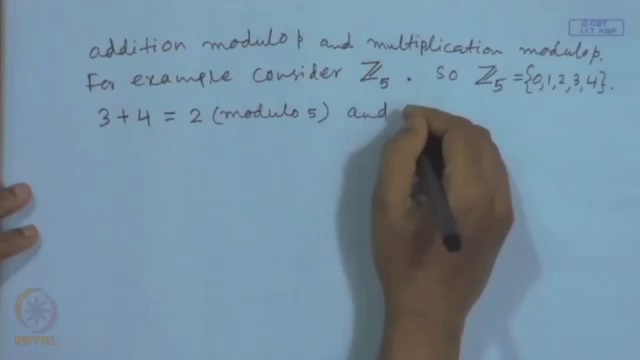 © CET
I.I.T. KGP
addition modulo p and multiplication modulo p.
For example consider ℤ₅ . So ℤ₅ = {0,1,2,3,4}.
3 + 4 = 2 (modulo 5) and
NPTEL